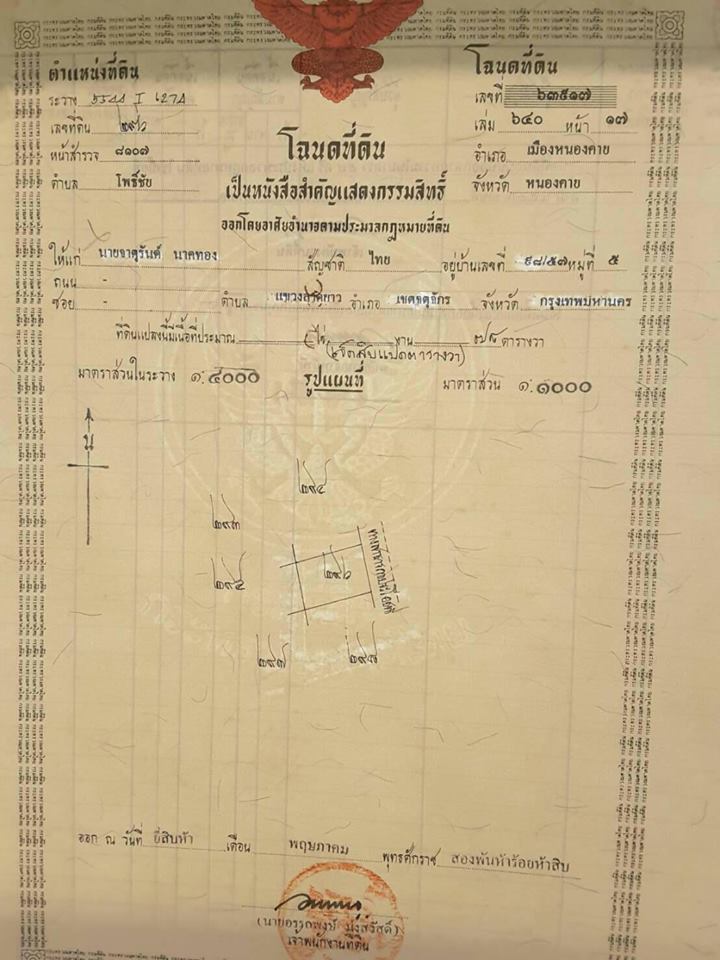 ตำแหน่งที่ดิน
ระวาง 5544 I 6274
เลขที่ดิน ๒๙๖
หน้าสำรวจ ๘๑๐๗
ตำบล โพธิ์ชัย
โฉนดที่ดิน
เลขที่ ๖๓๕๑๗
เล่ม ๖๔๐ หน้า ๑๗
อำเภอ เมืองหนองคาย
จังหวัด หนองคาย
โฉนดที่ดิน
เป็นหนังสือสำคัญแสดงกรรมสิทธิ์
ออกโดยอาศัยอำนาจตามประมวลกฎหมายที่ดิน
ให้แก่ นายจาตุรันต์ นาคทอง สัญชาติ ไทย อยู่บ้านเลขที่ ๙๘/๕๗ หมู่ที่ ๕
ถนน -
ซอย - ตำบล แขวงลาดยาว อำเภอ เขตจตุจักร จังหวัด กรุงเทพมหานคร
ที่ดินแปลงนี้มีเนื้อที่ประมาณ - ไร่ - งาน ๗๘ ตารางวา
(เจ็ดสิบแปดตารางวา)
มาตราส่วนในระวาง ๑:๔๐๐๐ รูปแผนที่ มาตราส่วน ๑:๑๐๐๐
น
๒๙๔
๒๙๓
๒๙๕
๒๙๖
ทางสาธารณประโยชน์
๒๙๗
ออก ณ วันที่ ยี่สิบห้า เดือน พฤษภาคม พุทธศักราช สองพันห้าร้อยห้าสิบ
เจ้าพนักงานที่ดิน